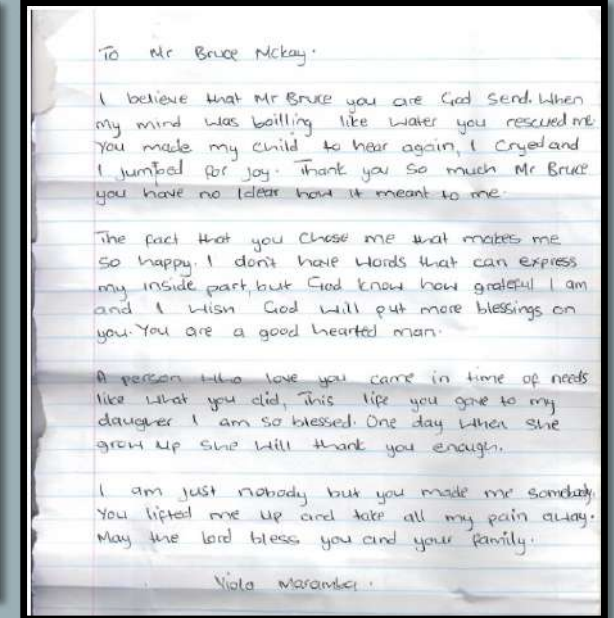 To Mr Bruce Mckay.
I believe that Mr Bruce you are God send. When
my mind was boilling like water you rescued me
You made my child to hear again, I Cryed and
I jumped for joy. Thank you so much Mr Bruce
you have no Idear how it meant to me.
The fact that you chose me that makes me
so happy. I don't have words that can express
my inside part, but God know how grateful I am
and I wish God will put more blessings on
you. You are a good hearted man.
A person who love you came in time of needs
like what you did, This life you gave to my
daugher I am so blessed. One day when she
grow up she will thank you enough.
I am just nobody but you made me somebody.
You lifted me up and take all my pain away.
May the lord bless you and your family.
Viola Maramba.